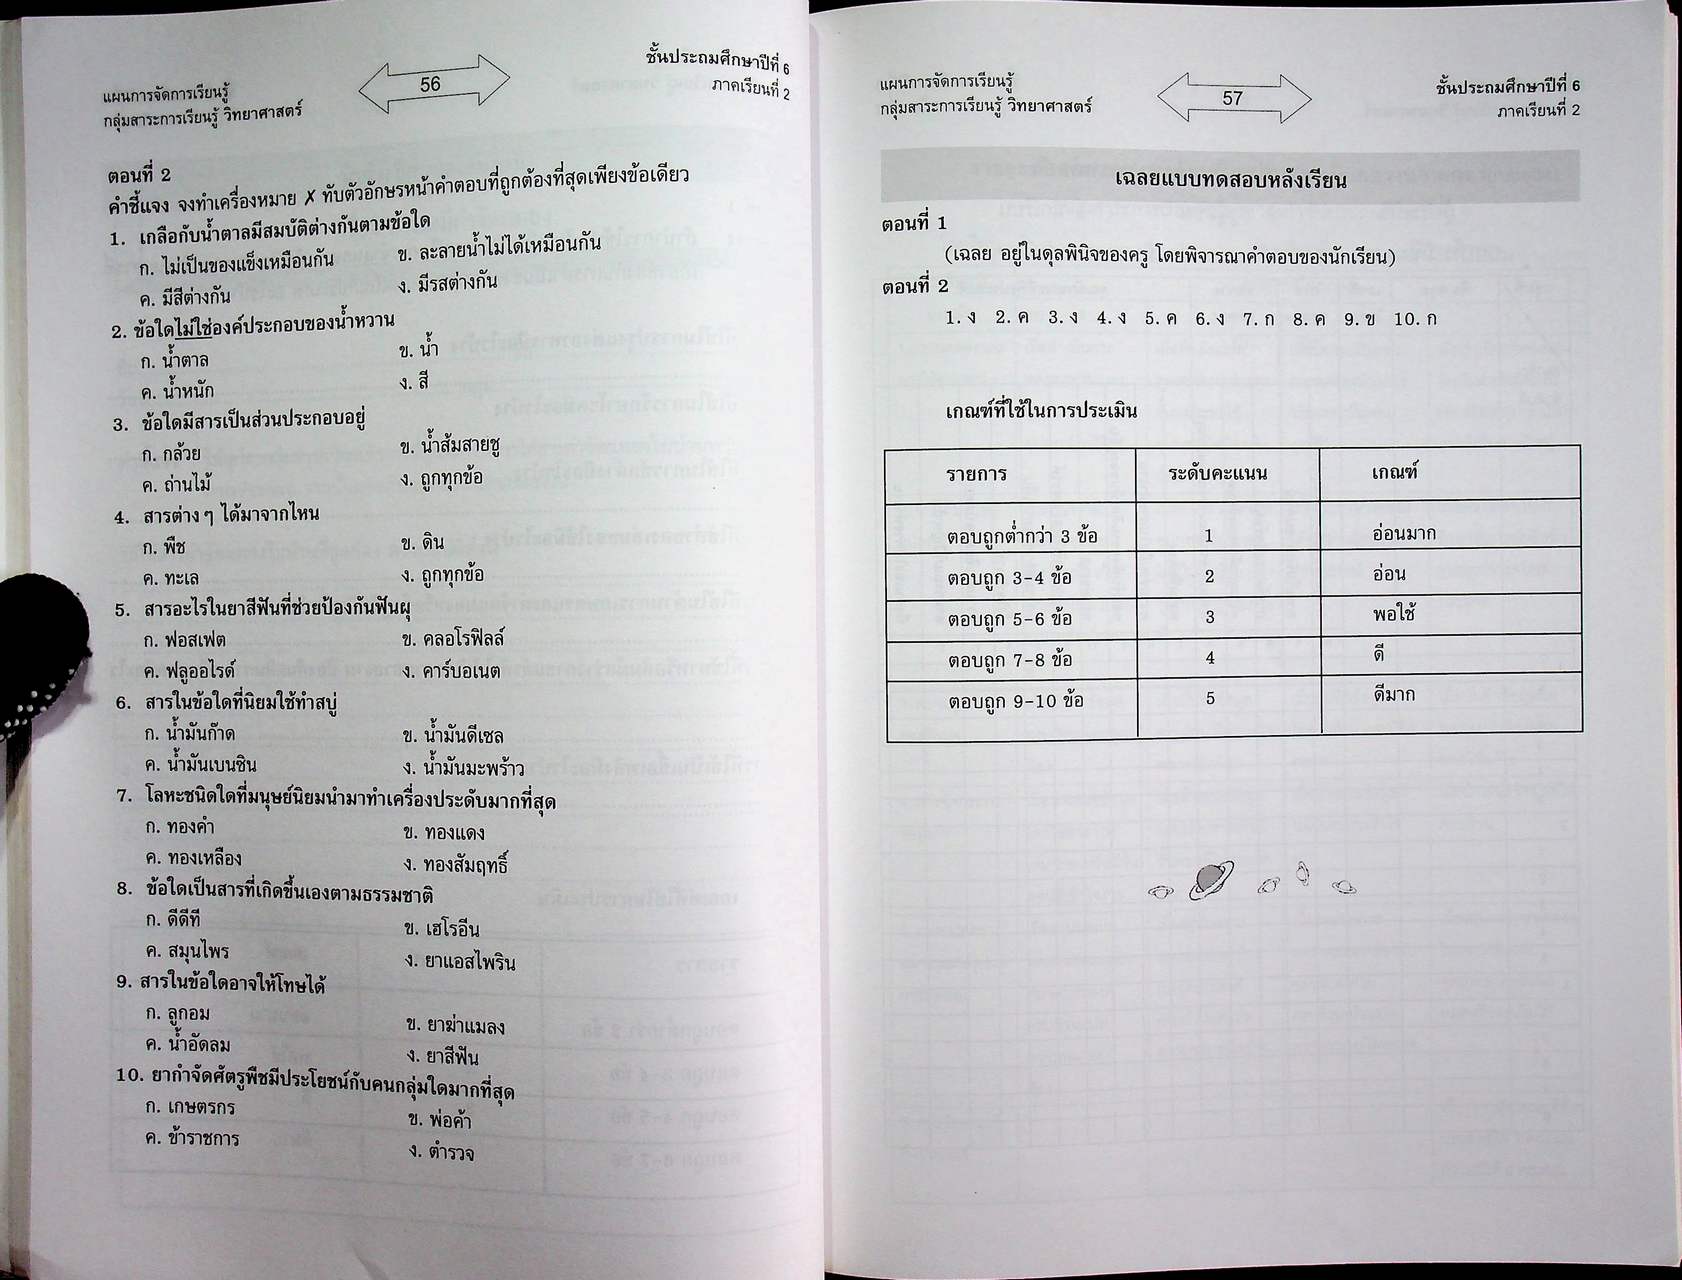 แผนการจัดการเรียนรู้
กลุ่มสาระการเรียนรู้ วิทยาศาสตร์
56
ชั้นประถมศึกษาปีที่ 6
ภาคเรียนที่ 2
ตอนที่ 2
คำชี้แจง จงทำเครื่องหมาย ✗ ทับตัวอักษรหน้าคำตอบที่ถูกต้องที่สุดเพียงข้อเดียว
1. เกลือกับน้ำตาลมีสมบัติต่างกันตามข้อใด
ก. ไม่เป็นของแข็งเหมือนกัน ข. ละลายน้ำไม่ได้เหมือนกัน
ค. มีสีต่างกัน ง. มีรสต่างกัน
2. ข้อใดไม่ใช่องค์ประกอบของน้ำหวาน
ก. น้ำตาล ข. น้ำ
ค. น้ำหนัก ง. สี
3. ข้อใดมีสารเป็นส่วนประกอบอยู่
ก. กล้วย ข. น้ำส้มสายชู
ค. ถ่านไม้ ง. ถูกทุกข้อ
4. สารต่าง ๆ ได้มาจากไหน
ก. พืช ข. ดิน
ค. ทะเล ง. ถูกทุกข้อ
5. สารอะไรในยาสีฟันที่ช่วยป้องกันฟันผุ
ก. ฟอสเฟต ข. คลอโรฟิลล์
ค. ฟลูออไรด์ ง. คาร์บอเนต
6. สารในข้อใดที่นิยมใช้ทำสบู่
ก. น้ำมันก๊าด ข. น้ำมันดีเซล
ค. น้ำมันเบนซิน ง. น้ำมันมะพร้าว
7. โลหะชนิดใดที่มนุษย์นิยมนำมาทำเครื่องประดับมากที่สุด
ก. ทองคำ ข. ทองแดง
ค. ทองเหลือง ง. ทองสัมฤทธิ์
8. ข้อใดเป็นสารที่เกิดขึ้นเองตามธรรมชาติ
ก. ดีดีที ข. เฮโรอีน
ค. สมุนไพร ง. ยาแอสไพริน
9. สารในข้อใดอาจให้โทษได้
ก. ลูกอม ข. ยาฆ่าแมลง
ค. น้ำอัดลม ง. ยาสีฟัน
10. ยากำจัดศัตรูพืชมีประโยชน์กับคนกลุ่มใดมากที่สุด
ก. เกษตรกร ข. พ่อค้า
ค. ข้าราชการ ง. ตำรวจ
แผนการจัดการเรียนรู้
กลุ่มสาระการเรียนรู้ วิทยาศาสตร์
57
ชั้นประถมศึกษาปีที่ 6
ภาคเรียนที่ 2
เฉลยแบบทดสอบหลังเรียน
ตอนที่ 1
(เฉลย อยู่ในดุลพินิจของครู โดยพิจารณาคำตอบของนักเรียน)
ตอนที่ 2
1. ง 2. ค 3. ง 4. ง 5. ค 6. ง 7. ก 8. ค 9. ข 10. ก
เกณฑ์ที่ใช้ในการประเมิน
รายการ ระดับคะแนน เกณฑ์
ตอบถูกต่ำกว่า 3 ข้อ 1 อ่อนมาก
ตอบถูก 3-4 ข้อ 2 อ่อน
ตอบถูก 5-6 ข้อ 3 พอใช้
ตอบถูก 7-8 ข้อ 4 ดี
ตอบถูก 9-10 ข้อ 5 ดีมาก